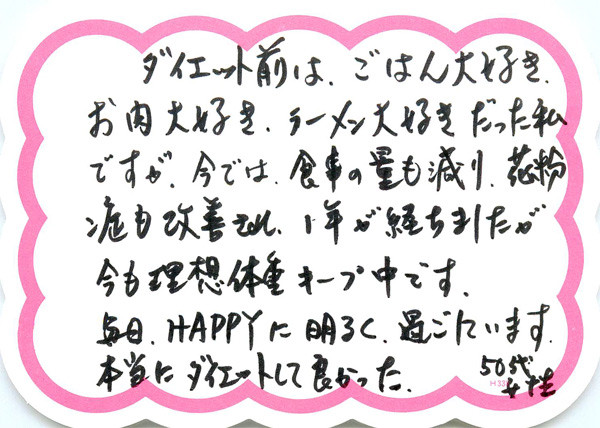 ダイエット前は、ごはん大好き、
お肉大好き、ラーメン大好きだった私
ですが、今では、食事の量も減り、花粉
症も改善され、1年が経ちましたが
今も理想体重キープ中です。
毎日、HAPPYに明るく、過ごています。
本当にダイエットして良かった。
50代
女性